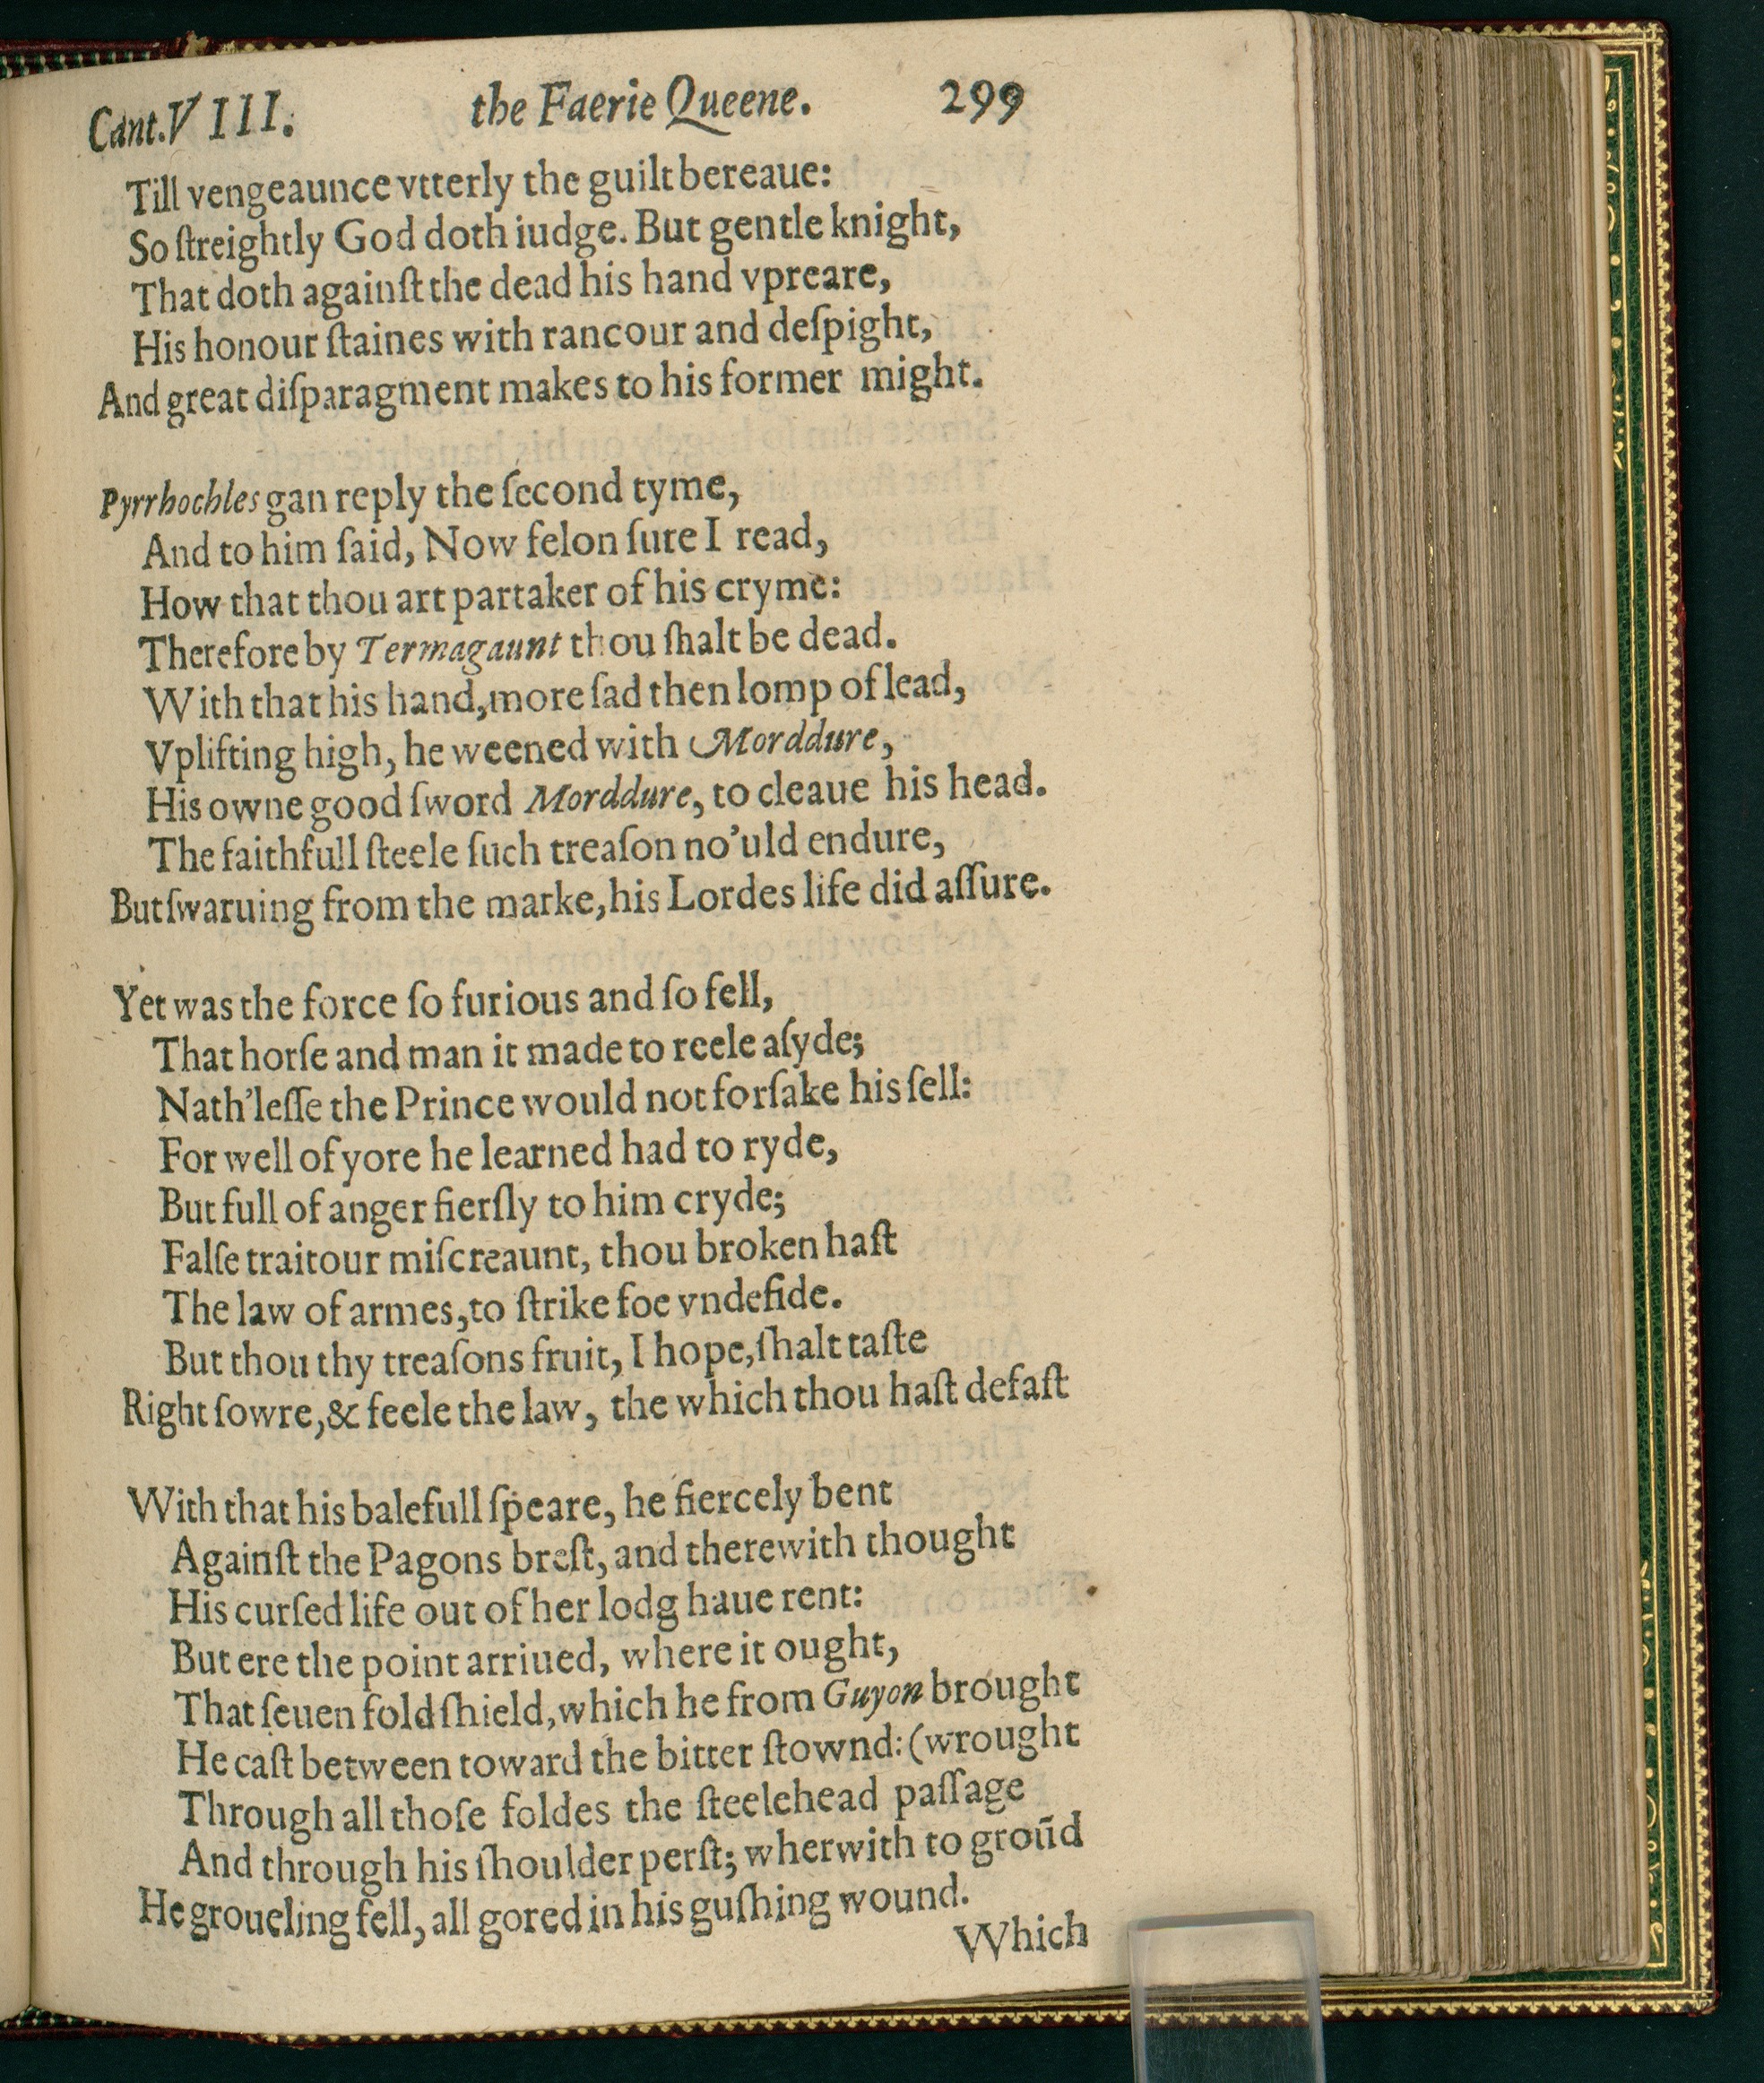 Cant.VIII. the Faerie Queene. 299
Till vengeaunce vtterly the guilt bereaue:
So ſtreightly God doth iudge. But gentle knight,
That doth againſt the dead his hand vpreare,
His honour ſtaines with rancour and deſpight,
And great diſparagment makes to his former might.
Pyrrhochles gan reply the ſecond tyme,
And to him ſaid, Now felon ſure I read,
How that thou art partaker of his cryme:
Therefore by Termagaunt thou ſhalt be dead.
With that his hand, more ſad then lomp of lead,
Vplifting high, he weened with Morddure,
His owne good ſword Morddure, to cleaue his head.
The faithfull ſteele ſuch treaſon no'uld endure,
But ſwaruing from the marke, his Lordes life did aſſure.
Yet was the force ſo furious and ſo fell,
That horſe and man it made to reele aſyde;
Nath'leſſe the Prince would not forſake his ſell:
For well of yore he learned had to ryde,
But full of anger fierſly to him cryde;
Falſe traitour miſcreaunt, thou broken haſt
The law of armes, to ſtrike foe vndefide.
But thou thy treaſons fruit, I hope, ſhalt taſte
Right ſowre, & feele the law, the which thou haſt defaſt
With that his balefull ſpeare, he fiercely bent
Againſt the Pagons breſt, and therewith thought
His curſed life out of her lodg haue rent:
But ere the point arriued, where it ought,
That ſeuen fold ſhield, which he from Guyon brought
He caſt between toward the bitter ſtownd: (wrought
Through all thoſe foldes the ſteelehead paſſage
And through his ſhoulder perſt; wherwith to groũd
He groueling fell, all gored in his guſhing wound.
Which